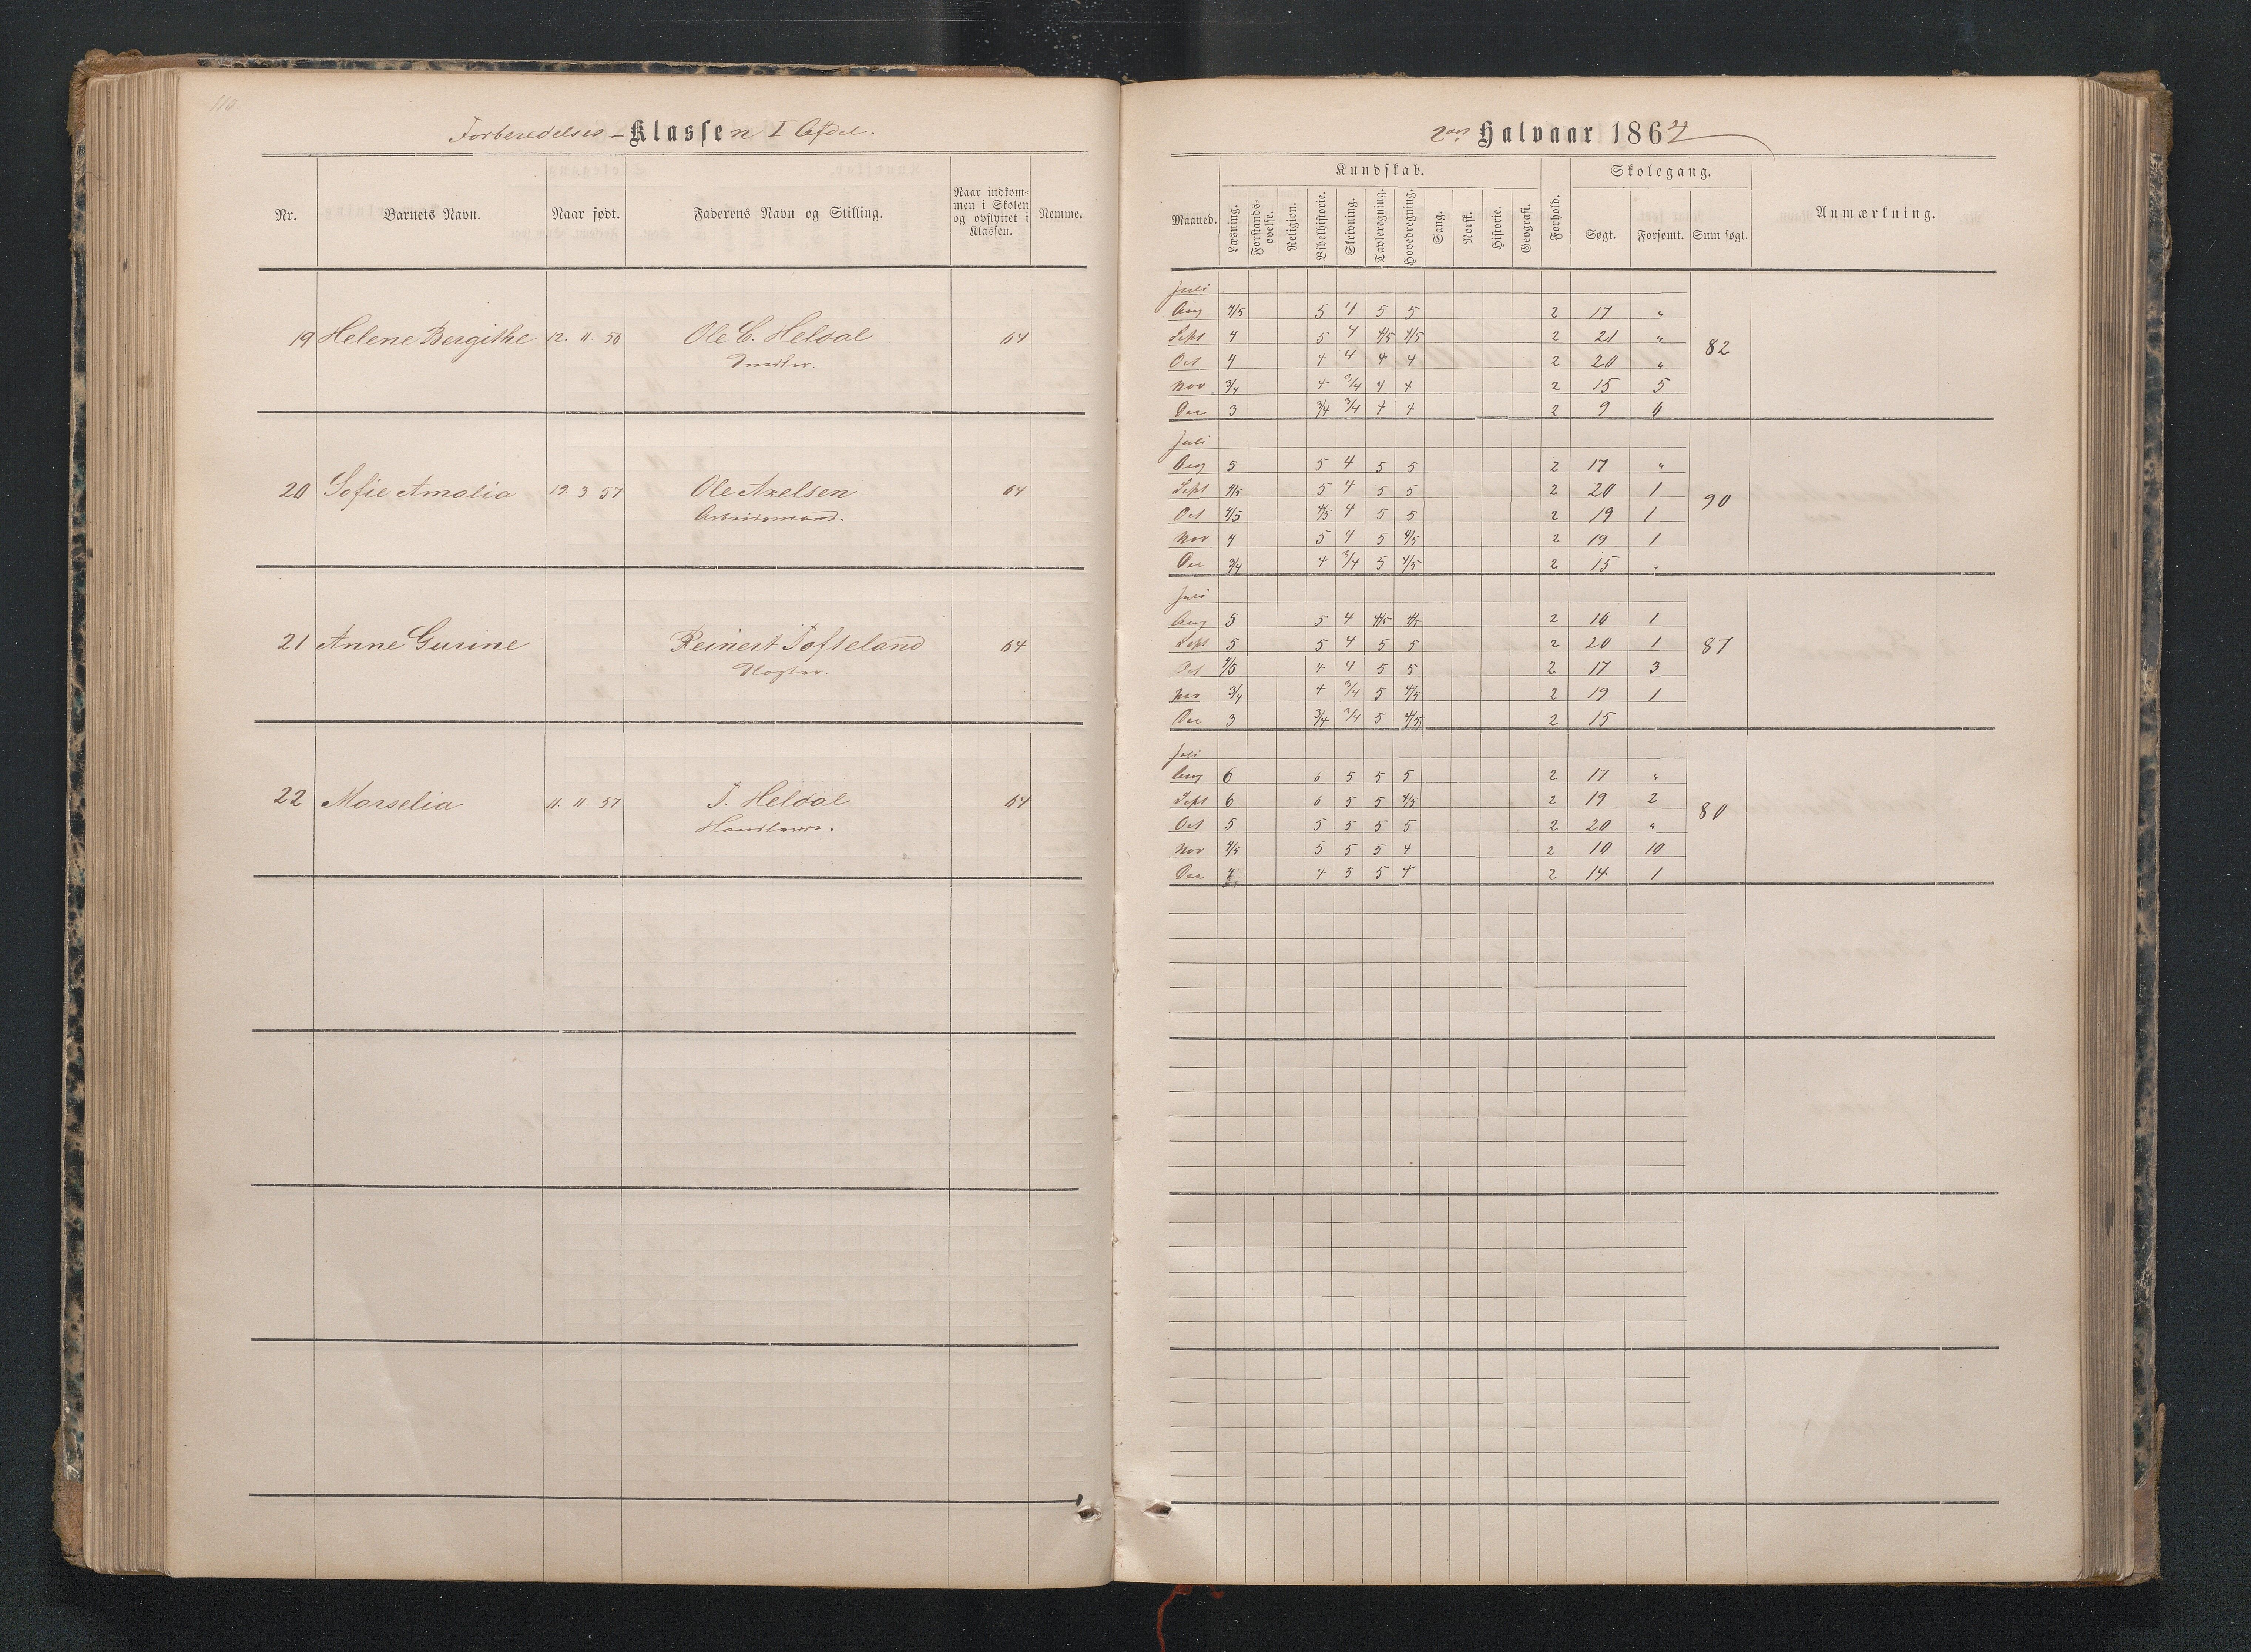 110.
Forberedelses-Klassen I Afdel.
Nr. Barnets Navn. Naar født. Faderens Navn og Stilling. Naar indkommen i Skolen og opflyttet i Klassen. Nemme.
19 Helene Bergithe 12. 11. 56 Ole C. Heldal 64
20 Sofie Amalia 19. 3. 57 Ole Axelsen 64
Arbeidsmand.
21 Anne Gurine Reinert Tofteland 64
22 Marselia 11. 11. 57 T. Heldal 64
2det Halvaar 186
Kundskab. Skolegang.
Maaned. Læsning. Forstandsøvelse. Religion. Bibelhistorie. Skrivning. Tavleregning. Hovedregning. Sang. Norsk. Historie. Geografi. Forhold. Søgt. Forsømt. Sum søgt. Anmærkning.
Juli
Aug 4/5 5 4 5 5 2 17 "
Sept 4 5 4 4/5 4/5 2 21 "
Oct 4 4 4 4 4 2 20 "
Nov 3/4 4 3/4 4 4 2 15 5
Dec 3 3/4 3/4 4 4 2 9 6
82
Juli
Aug 5 5 4 5 5 2 17 "
Sept 4/5 5 4 5 5 2 20 1
Oct 4/5 4/5 4 5 5 2 19 1
Nov 4 5 4 5 4/5 2 19 1
Dec 3/4 4 3/4 5 4/5 2 15 "
90
Juli
Aug 5 5 4 4/5 4/5 2 16 1
Sept 5 5 4 5 5 2 20 1
Oct 4/5 4 4 5 5 2 17 3
Nov 3/4 4 3/4 5 4/5 2 19 1
Dec 3 3/4 3/4 5 4/5 2 15
87
Juli
Aug 6 6 5 5 5 2 17 "
Sept 6 6 5 5 4/5 2 19 2
Oct 5 5 5 5 5 2 20 "
Nov 4/5 5 5 5 4 2 10 10
Dec 4 4 5 5 4 2 14 1
80